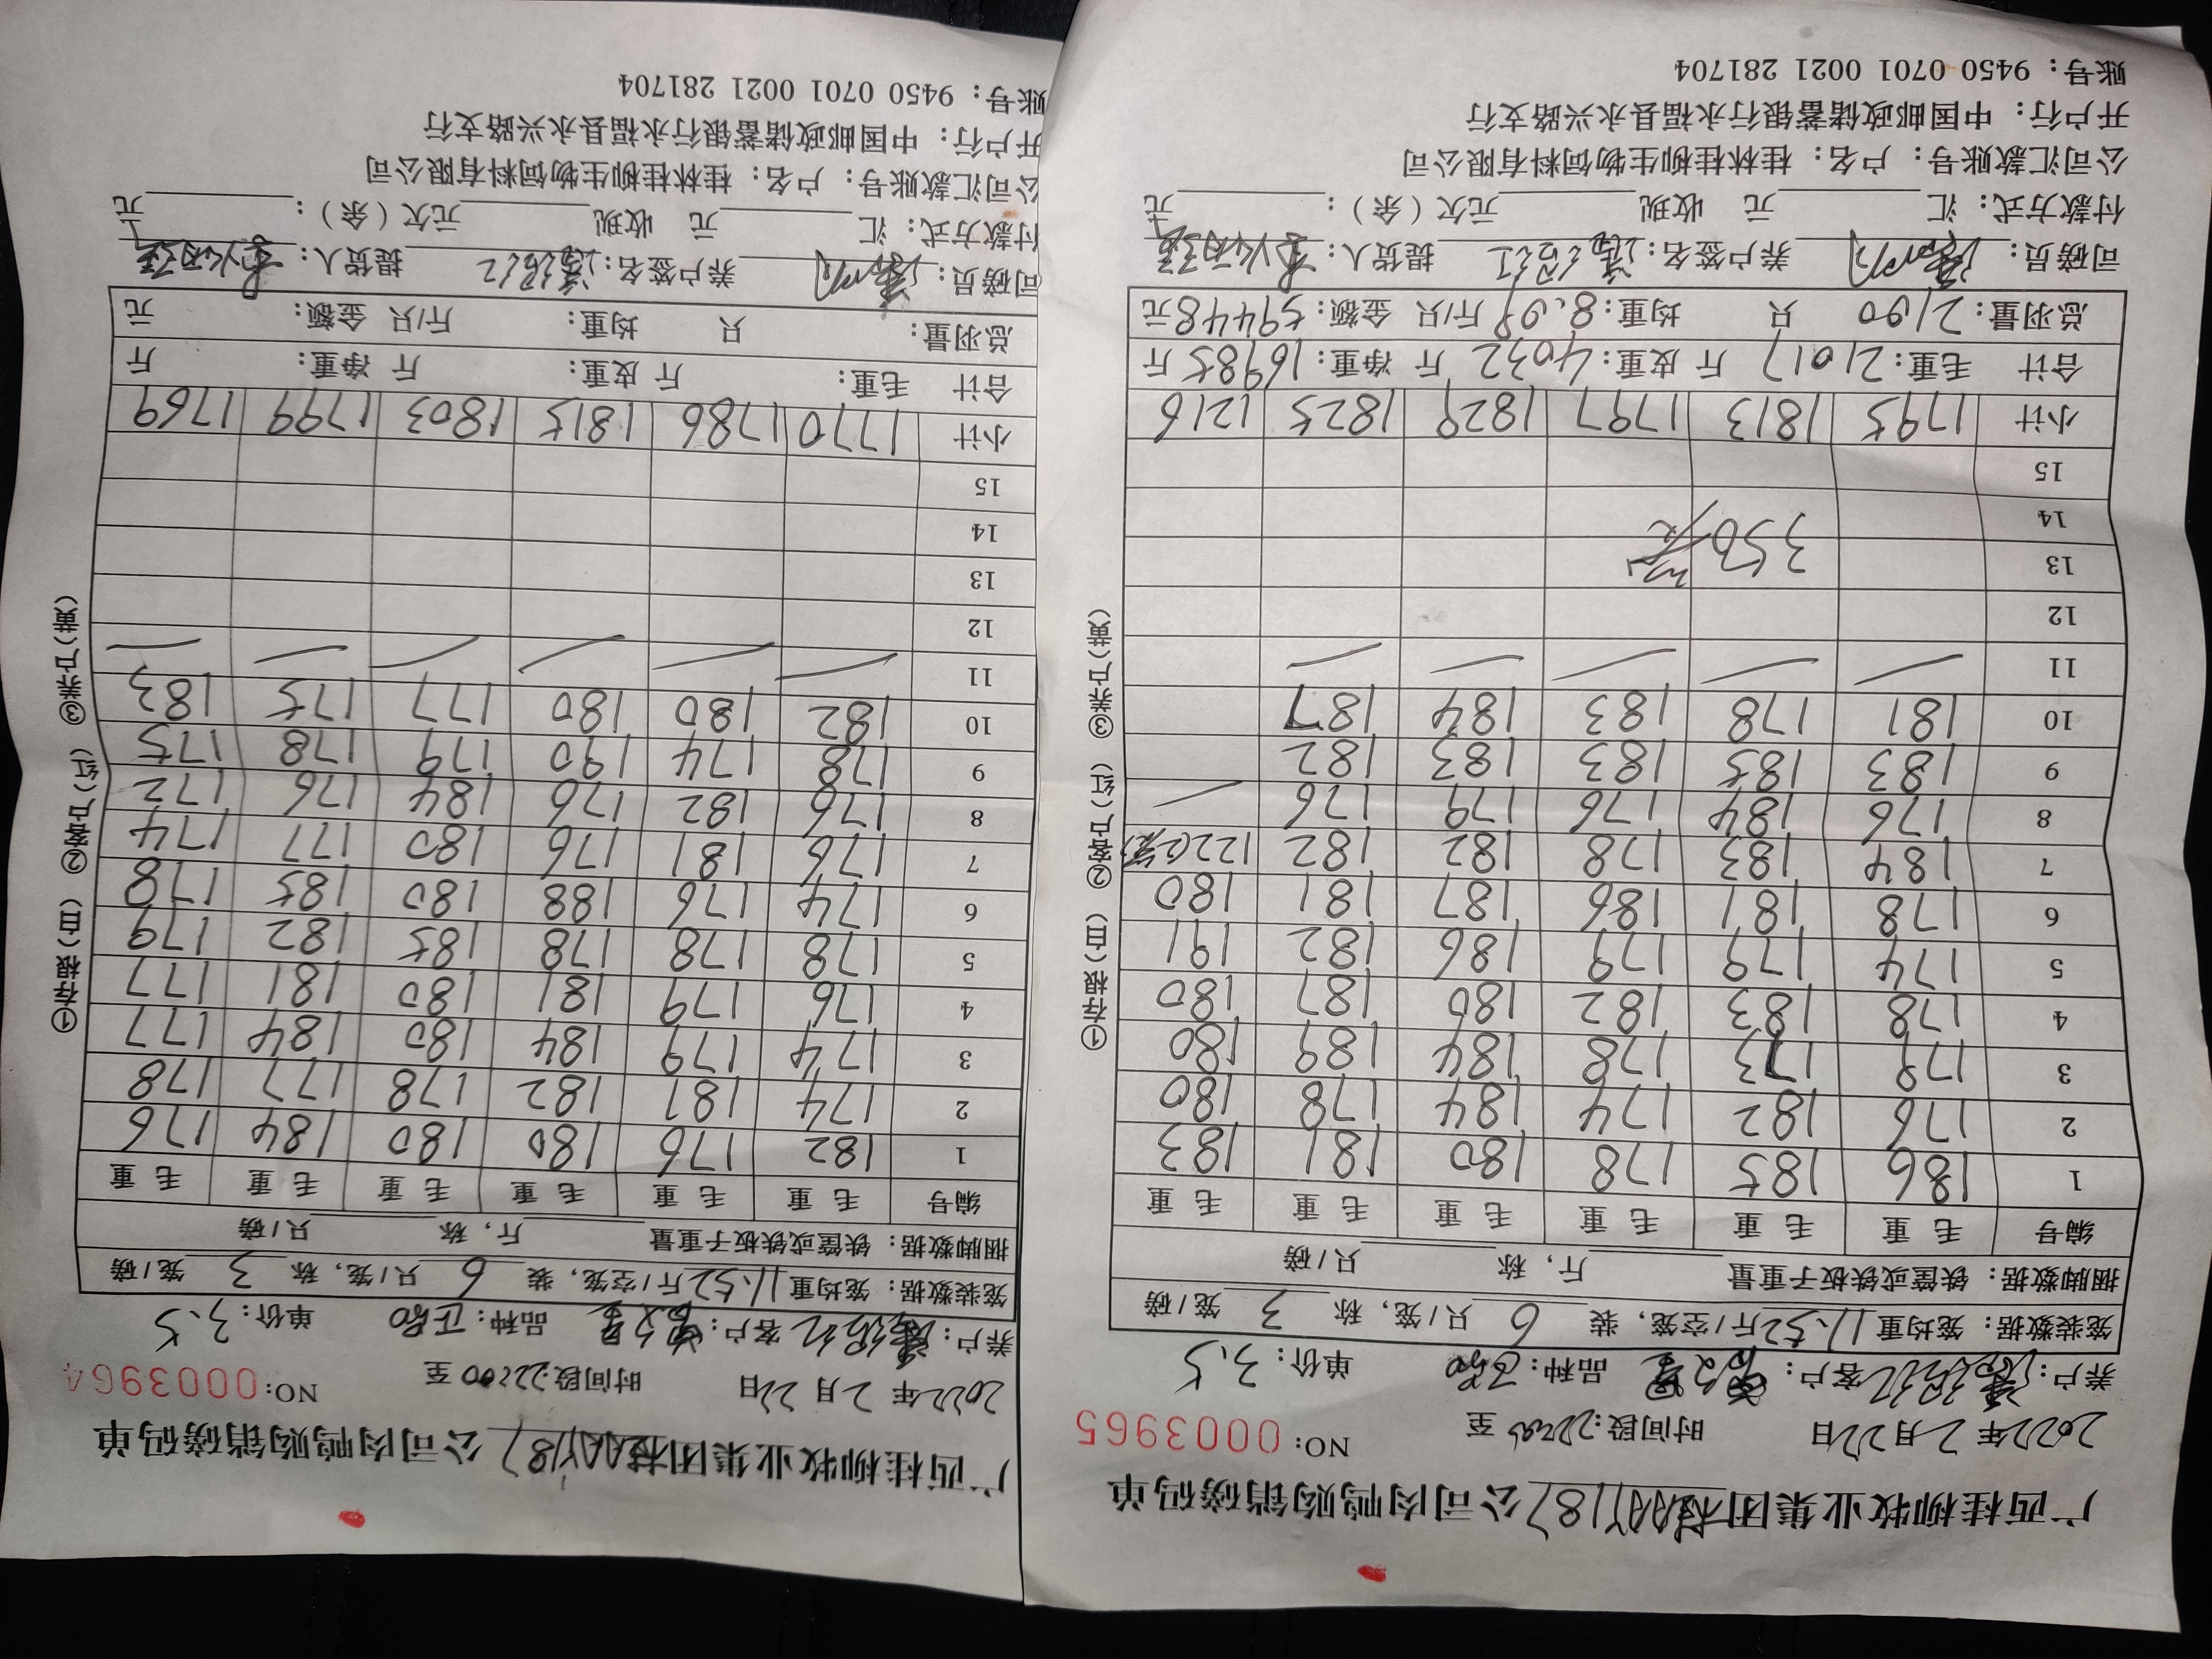 广西桂柳牧业集团 公司肉鸭购销磅码单
2022年 2月 22日 时间段:22:00 至 NO: 0003965
养户: 客户: 品种: 单价: 3.5
笼装数据: 笼均重 11.52 斤/空笼, 装 6 只/笼, 称 3 笼/磅
捆脚数据: 铁筐或铁板子重量 斤, 称 只/磅
编号 毛重 毛重 毛重 毛重 毛重 毛重
1 186 185 178 180 181 183
2 176 182 174 184 178 180
3 179 173 178 184 189 180
4 178 183 182 180 187 180
5 174 179 179 186 182 191
6 178 181 186 187 181 180
7 184 183 178 182 182 122
8 176 184 176 179 176
9 183 185 183 183 182
10 181 178 183 184 187
11
12
13
14 350
15
小计 1795 1813 1797 1829 1825 1216
合计 毛重: 21017 斤 皮重: 4032 斤 净重: 16985 斤
总羽量: 2100 只 均重: 8.09 斤/只 金额: 59448 元
司磅员: 养户签名: 提货人:
付款方式: 汇 元 收现 元欠(余): 元
公司汇款账号: 户名: 桂林桂柳生物饲料有限公司
开户行: 中国邮政储蓄银行永福县永兴路支行
账号: 9450 0701 0021 281704
①存根(白) ②客户(红) ③养户(黄)
广西桂柳牧业集团 公司肉鸭购销磅码单
2022年 2月 22日 时间段:22:00 至 NO: 0003964
养户: 客户: 品种: 单价: 3.5
笼装数据: 笼均重 11.52 斤/空笼, 装 6 只/笼, 称 3 笼/磅
捆脚数据: 铁筐或铁板子重量 斤, 称 只/磅
编号 毛重 毛重 毛重 毛重 毛重 毛重
1 182 176 180 180 184 176
2 174 181 182 178 177 178
3 174 179 184 180 184 177
4 176 179 181 180 181 177
5 178 178 178 185 182 179
6 174 176 188 180 185 178
7 176 181 176 180 177 174
8 176 182 176 184 176 172
9 178 174 190 179 178 175
10 182 180 180 177 175 183
11
12
13
14
15
小计 1770 1786 1815 1803 1799 1769
合计 毛重: 斤 皮重: 斤 净重: 斤
总羽量: 只 均重: 斤/只 金额: 元
司磅员: 养户签名: 提货人:
付款方式: 汇 元 收现 元欠(余): 元
公司汇款账号: 户名: 桂林桂柳生物饲料有限公司
开户行: 中国邮政储蓄银行永福县永兴路支行
账号: 9450 0701 0021 281704
①存根(白) ②客户(红) ③养户(黄)